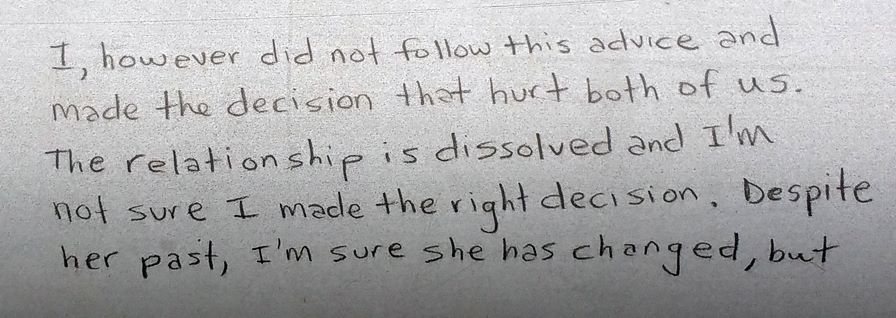 I, however did not follow this advice and
made the decision that hurt both of us.
The relationship is dissolved and I'm
not sure I made the right decision. Despite
her past, I'm sure she has changed, but